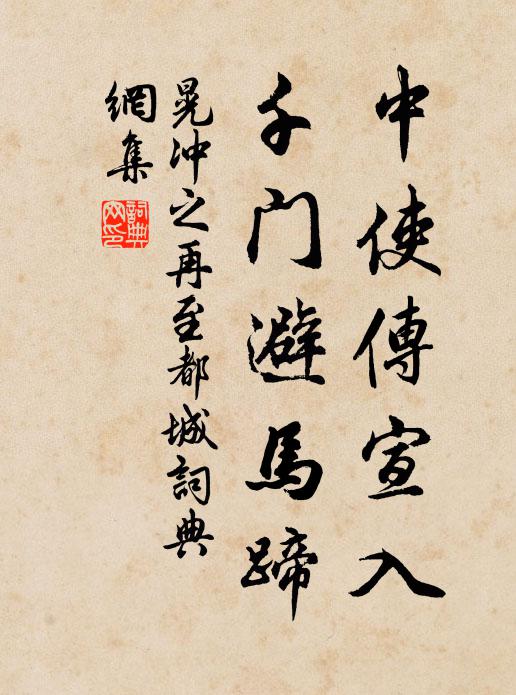 中使傳宣入
千門避馬蹄
晁沖之再至都城詞典
網集
詞典網印